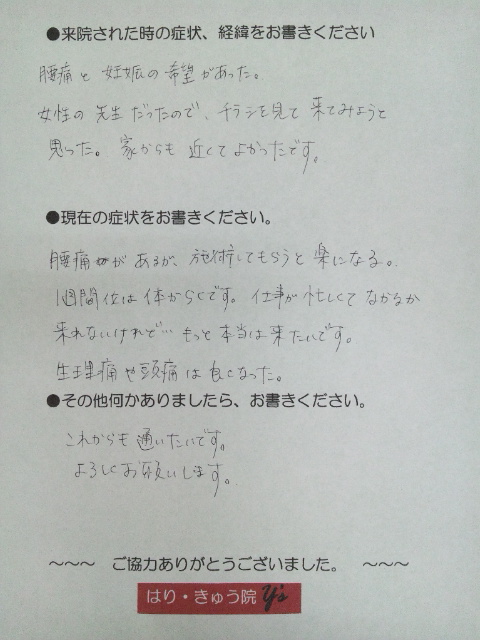 ●来院された時の症状、経緯をお書きください
腰痛と妊娠の希望があった。
女性の先生だったので、チラシを見て来てみようと
思った。家からも近くてよかったです。
●現在の症状をお書きください。
腰痛があるが、施術してもらうと楽になる。
1週間位は体がらくです。仕事が忙しくてなかなか
来れないけれど…もっと本当は来たいです。
生理痛や頭痛は良くなった。
●その他何かありましたら、お書きください。
これからも通いたいです。
よろしくお願いします。
~~~ ご協力ありがとうございました。 ~~~
はり・きゅう院 Y's